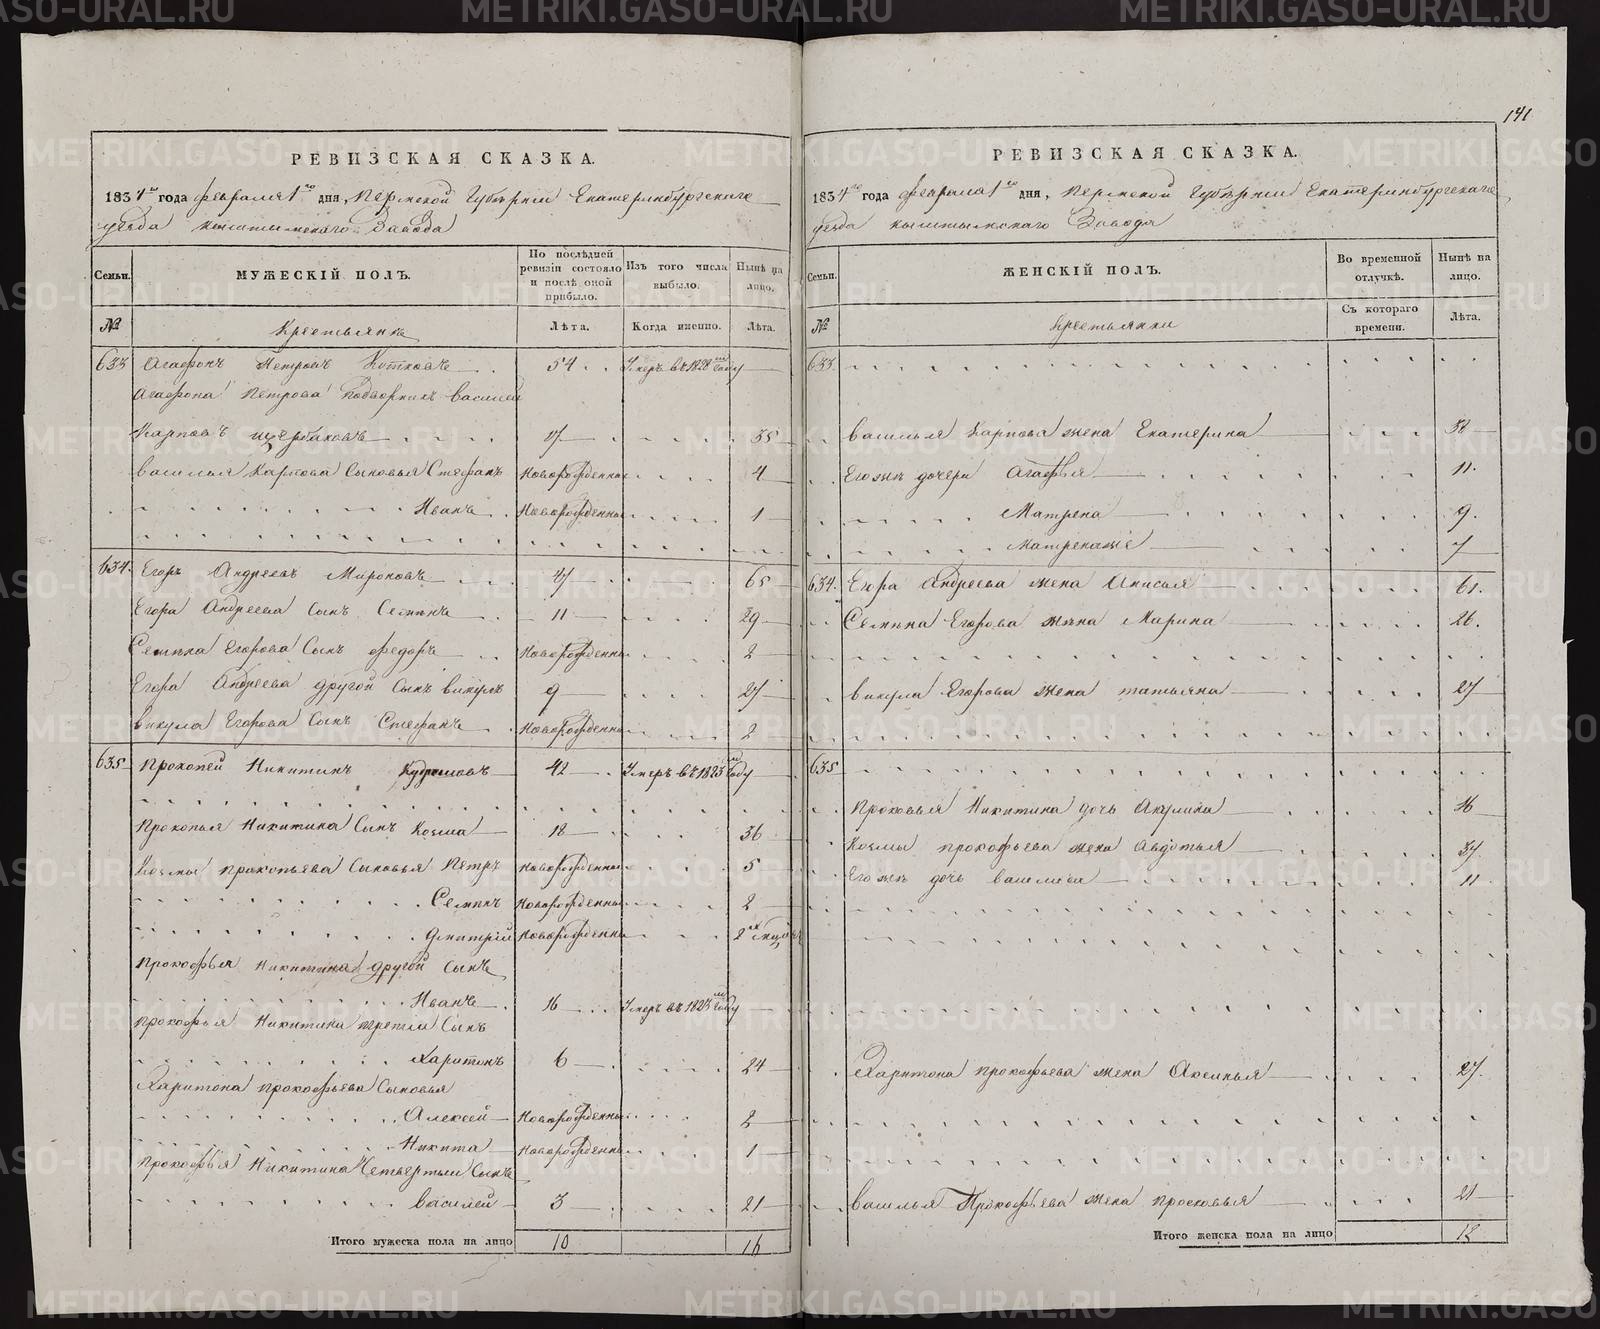 141
РЕВИЗСКАЯ СКАЗКА.
1834го года февраля 1го дня, Пермской Губернии Екатеринбургскаго
уезда Кыштымскаго Завода
Семьи.
МУЖЕСКІЙ ПОЛЪ.
По послѣдней ревизіи состояло и послѣ оной прибыло.
Изъ того числа выбыло.
Нынѣ на лицо.
№
Крестьяне
Лѣта.
Когда именно.
Лѣта.
633 Агафонъ Петровъ 54 Умеръ въ 1828м году
Агафона Петрова Подворникъ Василей
Карповъ Щербаковъ 17 35
Василья Карпова Сыновья Стефанъ Новорожденны 4
Иванъ Новорожденны 1
634. Егоръ Андреевъ Мироновъ 47 65
Егора Андреева Сынъ Семенъ 11 29
Семена Егорова Сынъ Федоръ Новорожденны 2
Егора Андреева другой Сынъ Викулъ 9 27
Викула Егорова Сынъ Стефанъ Новорожденны 2
635 Прокопей Никитинъ 42 Умеръ въ 1823м году
Прокопья Никитина Сынъ Козма 18 36
Козмы Прокопьева Сыновья Петръ Новорожденны 5
Семенъ Новорожденны 2
Дмитрій Новорожденны 2
Прокофья Никитина другой Сынъ
Иванъ 16 Умеръ въ 1823м году
Прокофья Никитина третій Сынъ
Харитонъ 6 24
Харитона Прокофьева Сыновья
Алексей Новорожденны 2
Никита Новорожденны 1
Прокофья Никитина Четвертый Сынъ
Василей 3 21
Итого мужеска пола на лицо 10 16
РЕВИЗСКАЯ СКАЗКА.
1834го года февраля 1го дня, Пермской Губернии Екатеринбургскаго
уезда Кыштымскаго Завода
Семьи.
ЖЕНСКІЙ ПОЛЪ.
Во временной отлучкѣ.
Нынѣ на лицо.
№
Крестьянки
Съ котораго времени.
Лѣта.
633.
Василья Карпова жена Екатерина 32
Егожъ дочери Агафья 11.
Матрена 9.
Матрена же 7
634. Егора Андреева жена Анисья 61.
Семена Егорова жена Марина 26.
Викула Егорова жена Татьяна 27
635
Прокопья Никитина дочь Акулина 16
Козмы Прокофьева жена Авдотья 37
Егожъ дочь Василиса 11
Харитона Прокофьева жена Аксинья 27.
Василья Прокофьева жена Просковья 21
Итого женска пола на лицо 12
METRIKI.GASO-URAL.RU